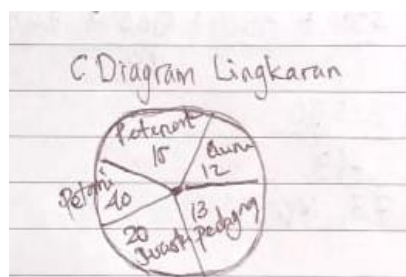 C Diagram Lingkaran
Peternak
15
Guru
12
Petani
40
13
pedagang
20
Swasta